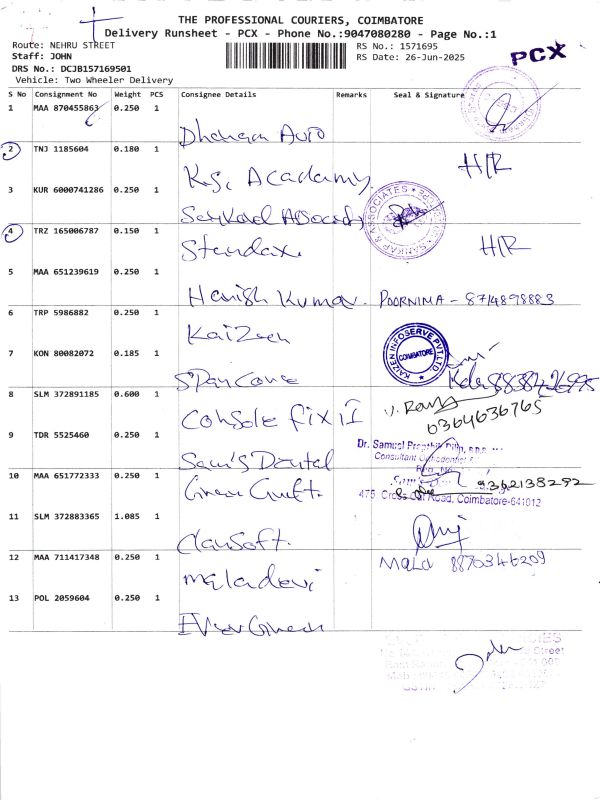 THE PROFESSIONAL COURIERS, COIMBATORE
Delivery Runsheet - PCX - Phone No.:9047080280 - Page No.:1
Route: NEHRU STREET
Staff: JOHN
DRS No.: DCJB157169501
Vehicle: Two Wheeler Delivery
RS No.: 1571695
RS Date: 26-Jun-2025
PCX
S No Consignment No Weight PCS Consignee Details Remarks Seal & Signature
1 MAA 870455863 0.250 1
Dhanam Auto
2 TNJ 1185604 0.180 1
K.S. Academy H/R
3 KUR 6000741286 0.250 1
& ASSOCIATES
4 TRZ 165006787 0.150 1
Standax H/R
5 MAA 651239619 0.250 1
Harish Kumar POORNIMA - 8714898883
6 TRP 5986882 0.250 1
Kaizen
KAIZEN INFOSERVE PVT.LTD.
COIMBATORE
7 KON 80082072 0.185 1
Span Cone
8 SLM 372891185 0.600 1
Console Fix it
9 TDR 5525460 0.250 1
Sam's Dental
Dr. Samuel
Consultant Orthodontist
Reg. No
10 MAA 651772333 0.250 1
Green Craft. 9362138292
475 Cross Cut Road, Coimbatore-641012
11 SLM 372883365 1.085 1
Clansoft.
12 MAA 711417348 0.250 1
Maladevi Mala 8870346209
13 POL 2059604 0.250 1
Ever Green
Street